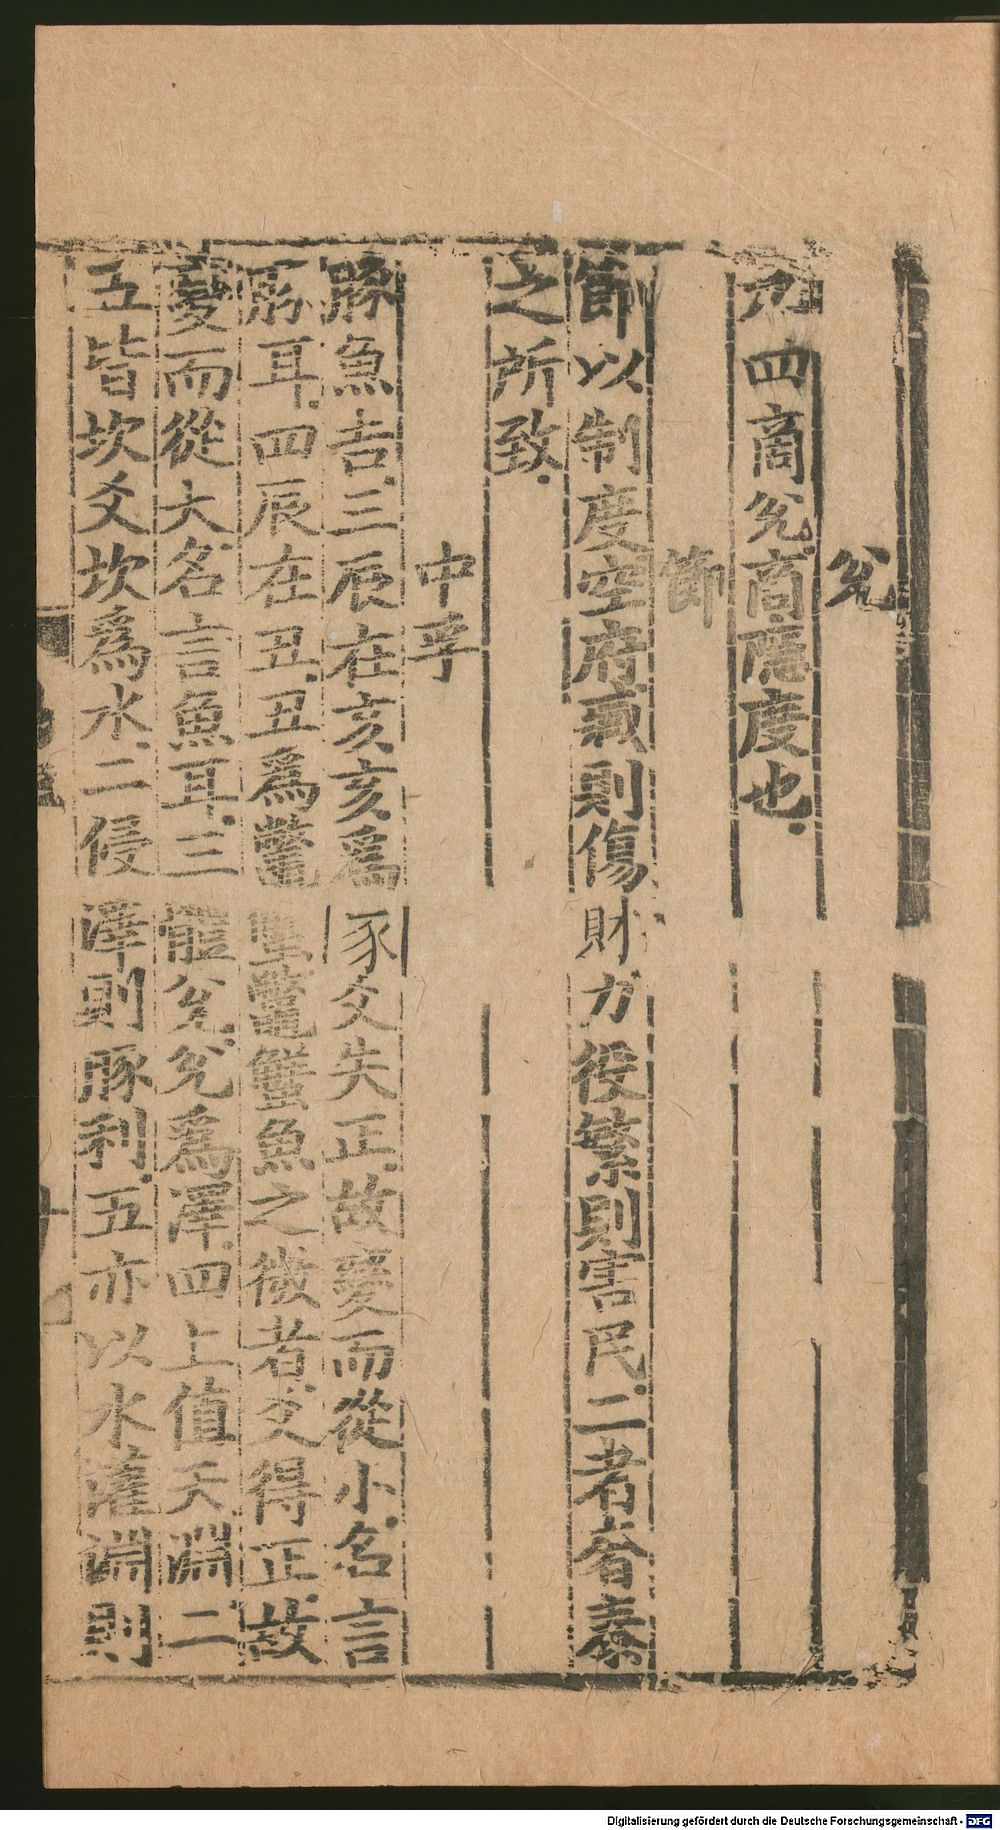 兊
九四商兊商隱度也
節
節以制度空府藏則傷財力役繁則害民二者奢泰
之所致
中孚
豚魚吉三辰在亥亥爲豕爻失正故變而從小名言
豚耳四辰在丑丑爲鼈蟹鼈蟹魚之微者爻得正故
變而從大名言魚耳三體兊兊爲澤四上值天淵二
五皆坎爻坎爲水二侵澤則豚利五亦以水灌淵則
Digitalisierung gefördert durch die Deutsche Forschungsgemeinschaft - DFG